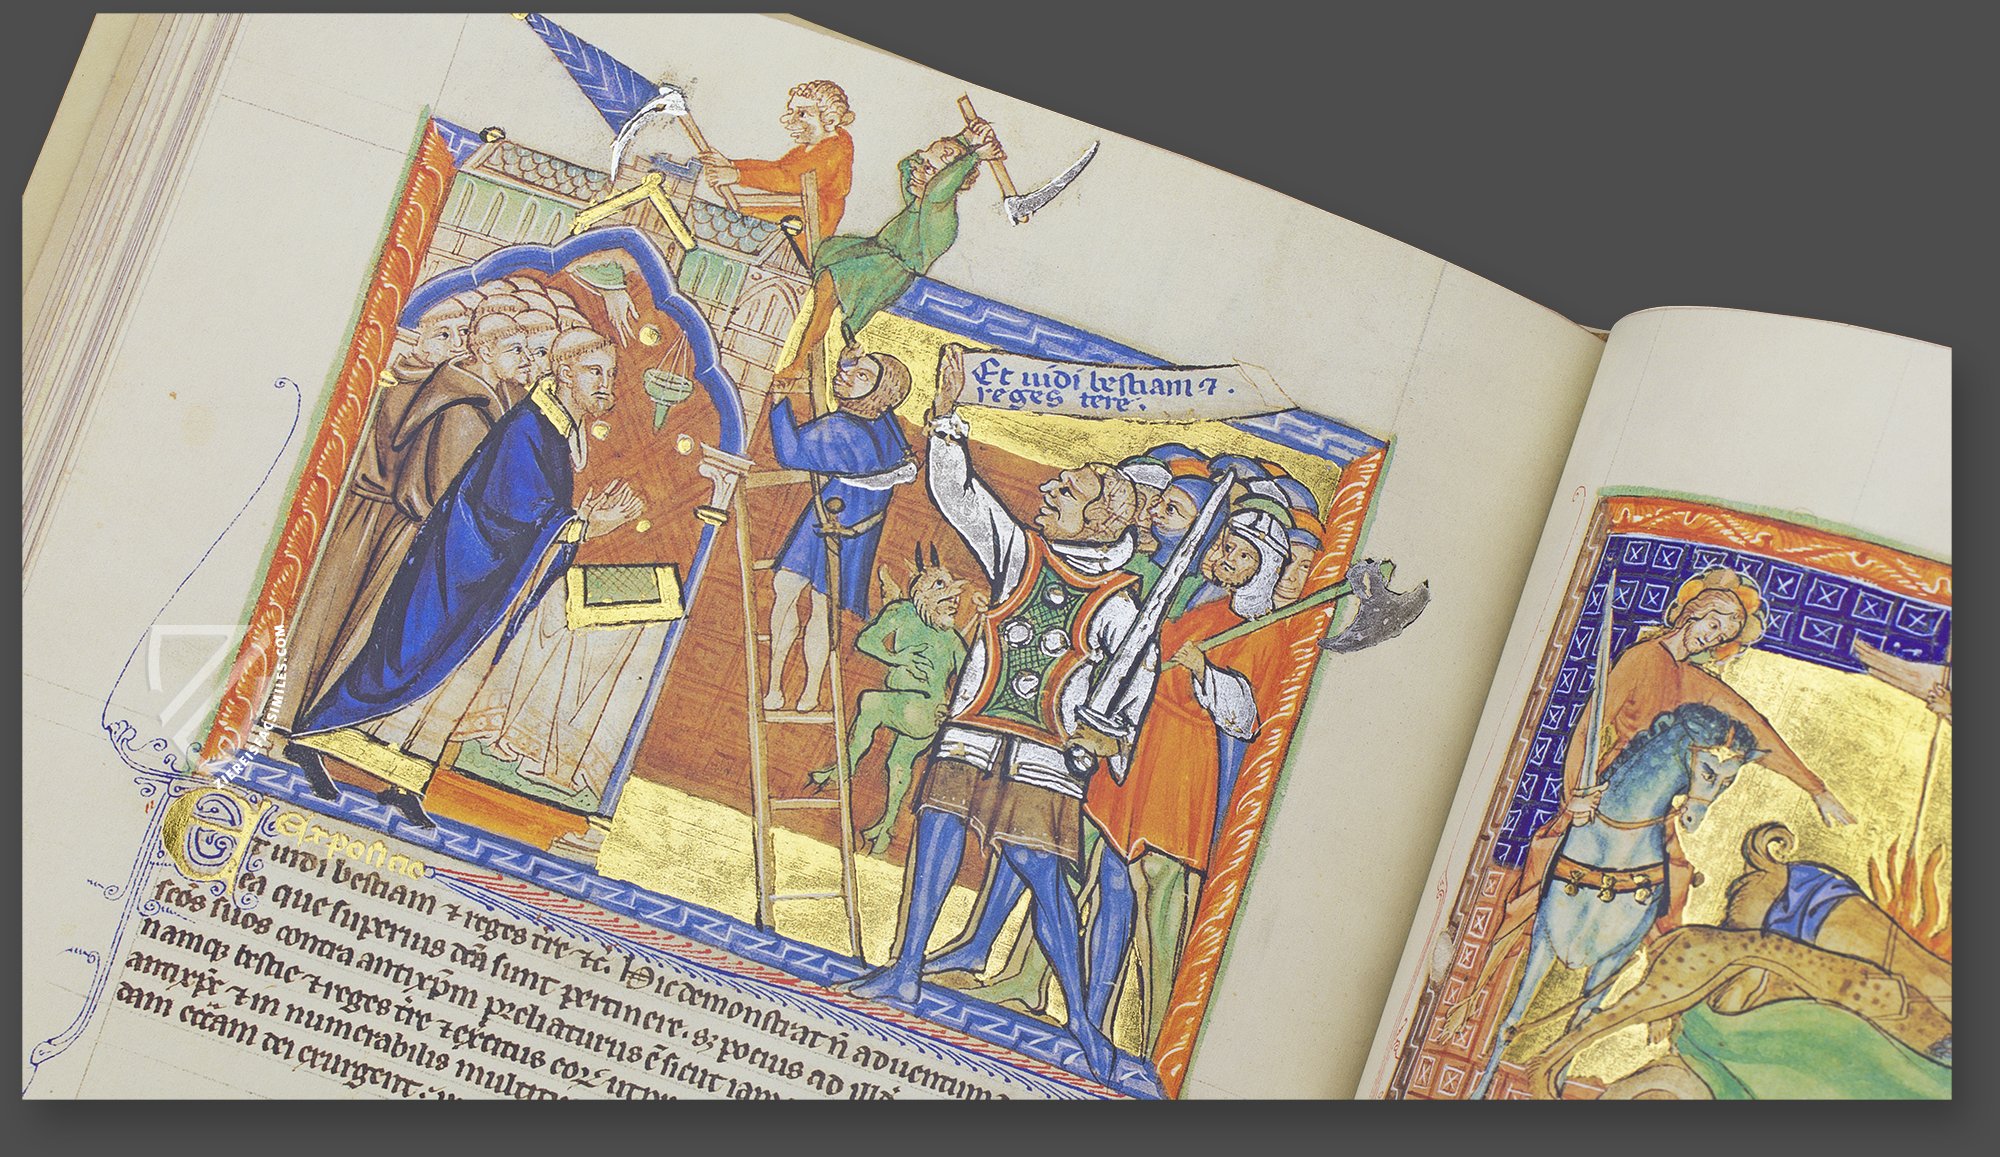 Et uidi bestiam ⁊.
reges tere.
Exposicio
Et uidi bestiam ⁊ reges t̄re ⁊c̄. Hic demonstrat n̄ aduentum
ea que superius dc̄a sunt pertinere. sȝ pocius ad illū
sc̄os suos contra antixp̄m preliaturus ē sicut iam
namqȝ bestie ⁊ reges t̄re ⁊ exercitus eoꝝ
antixp̄c ⁊ in numerabilis
dam ecc̄am dei exurgent.
ZIEREISFACSIMILES.COM